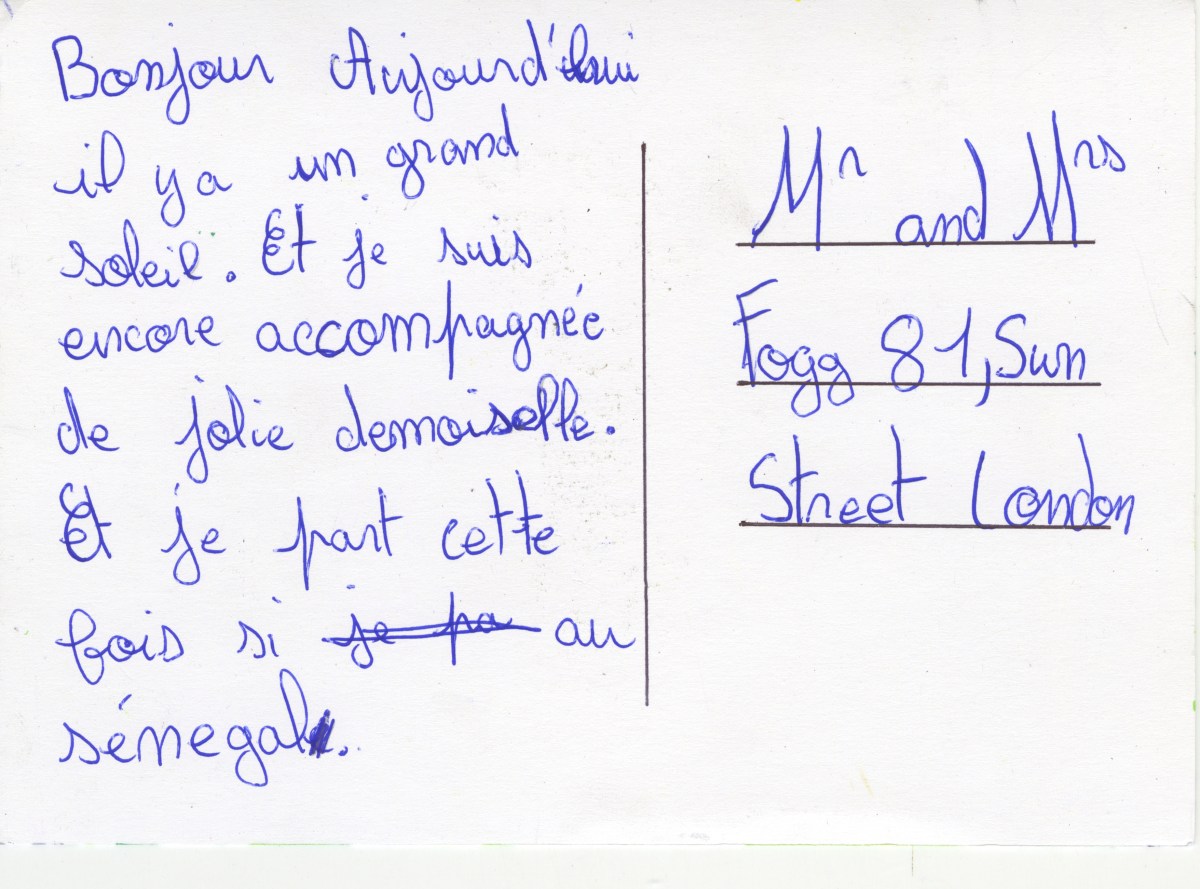 Bonjour Aujourd'hui
il ya un grand
soleil. Et je suis
encore accompagnée
de jolie demoiselle.
Et je part cette
fois si je pa au
sénegal.
Mr and Mrs
Fogg 81, Sun
Street London